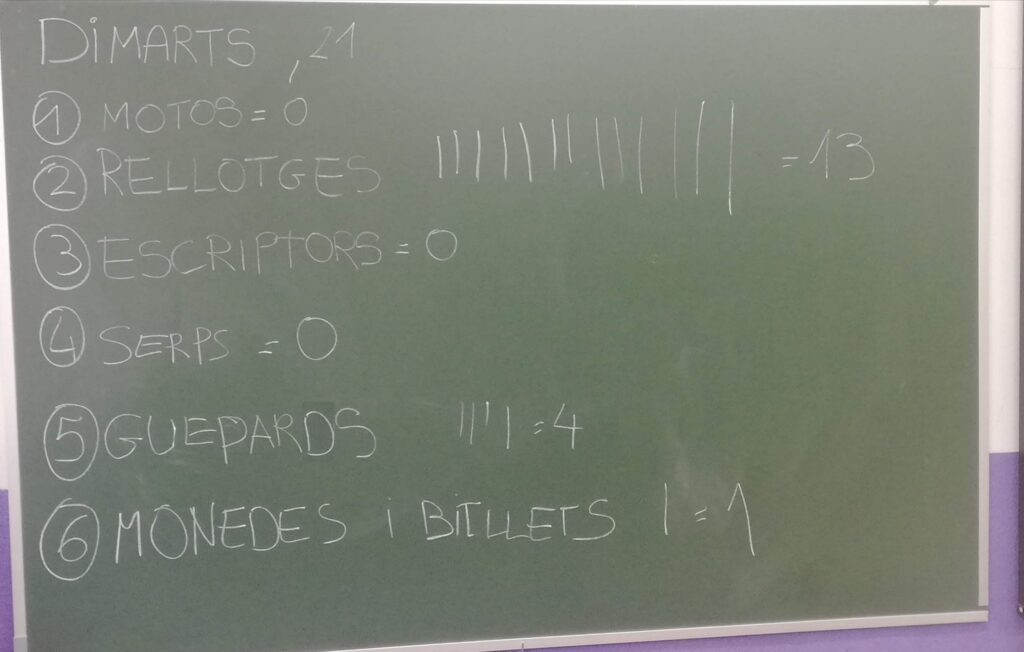 DiMARTS ,21
① MOTOS = 0
② RELLOTGES ||||||||||||| = 13
③ ESCRIPTORS = 0
④ SERPS = 0
⑤ GUEPARDS |||| = 4
⑥ MONEDES i BITLLETS | = 1